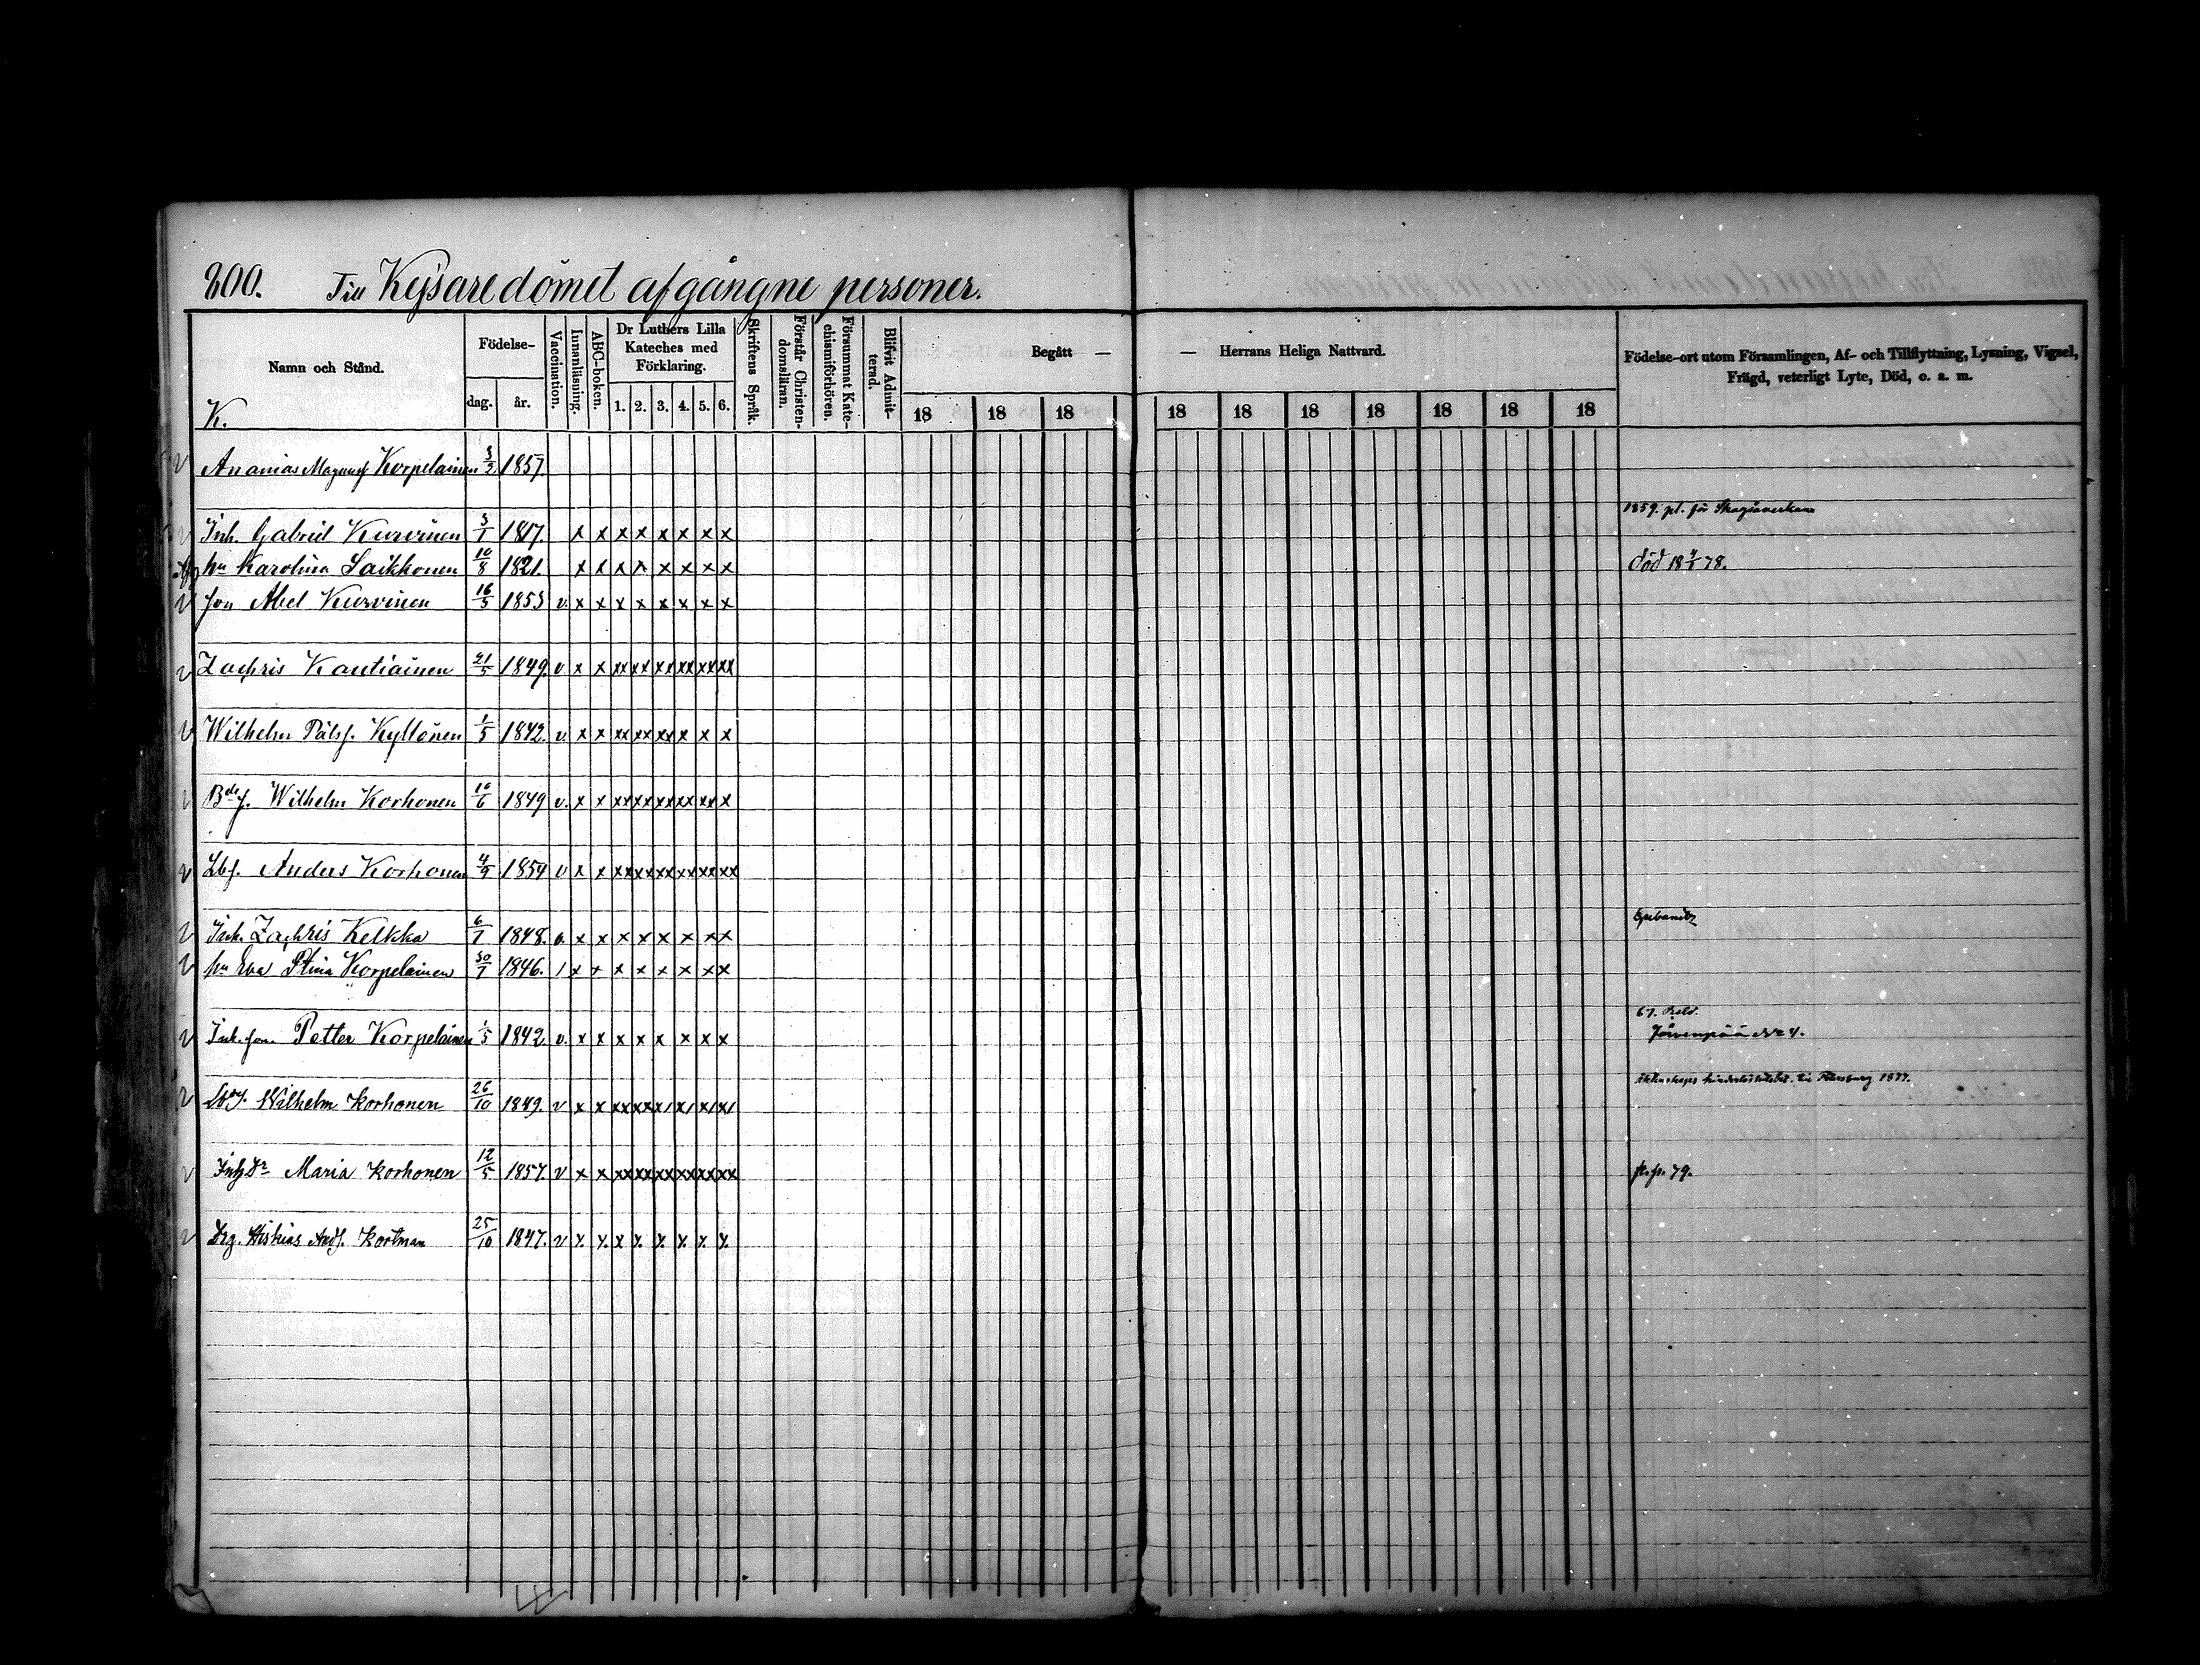 800. Till Kejsaredömet afgångne personer.
Namn och Stånd.
K.
Födelse-
dag. år.
Vaccination.
Innanläsning.
ABC-boken.
Dr Luthers Lilla
Kateches med
Förklaring.
1. 2. 3. 4. 5. 6.
Skriftens Språk.
Förstår Christen-
domsläran.
Försummat Kate-
chismiförhören.
Blifvit Admit-
terad.
Begått — — Herrans Heliga Nattvard.
18 18 18 18 18 18 18 18 18 18
Födelse-ort utom Församlingen, Af- och Tillflyttning, Lysning, Vigsel,
Frägd, veterligt Lyte, Död, o. s. m.
Ananias Magnusf Korpelainen 3/2 1857.
1859. pt. för
Inh. Gabriel Kurvinen 3/1 1817. x x x x x x x x
hu Karolina Laikkonen 10/8 1821. x x x x x x x x död 18 4/1 78.
son Abel Kurvinen 16/5 1853 v. x x x x x x x x
Zachris Kautiainen 21/5 1849. v. x x xx xx xx xx xx xx
Wilhelm Pålsf. Kyllönen 1/5 1842. v. x x xx xx xx x x x
Bdef. Wilhelm Korhonen 10/6 1849 v. x x xx xx xx xx xx x
Lbf. Anders Korhonen 4/9 1854 v x x xx xx xx xx xx xx
Inh. Zachris Kelkka 6/7 1848. v. x x x x x x x x
hu Eva Stina Korpelainen 30/7 1846. / x x x x x x x x
67.
Inh. son. Petter Korpelainen 1/5 1842. v. x x x x x x x x Järvenpää No 4.
Petersburg 1877.
Lbf. Wilhelm Korhonen 26/10 1849. v x x xx xx x/ x/ x/ x/
Inh Dr Maria Korhonen 12/5 1857. v x x xx xx xx xx xx xx p. p. 79.
Drg. Hiskias Andf. Kortman 25/10 1847. v x x x x x x x x